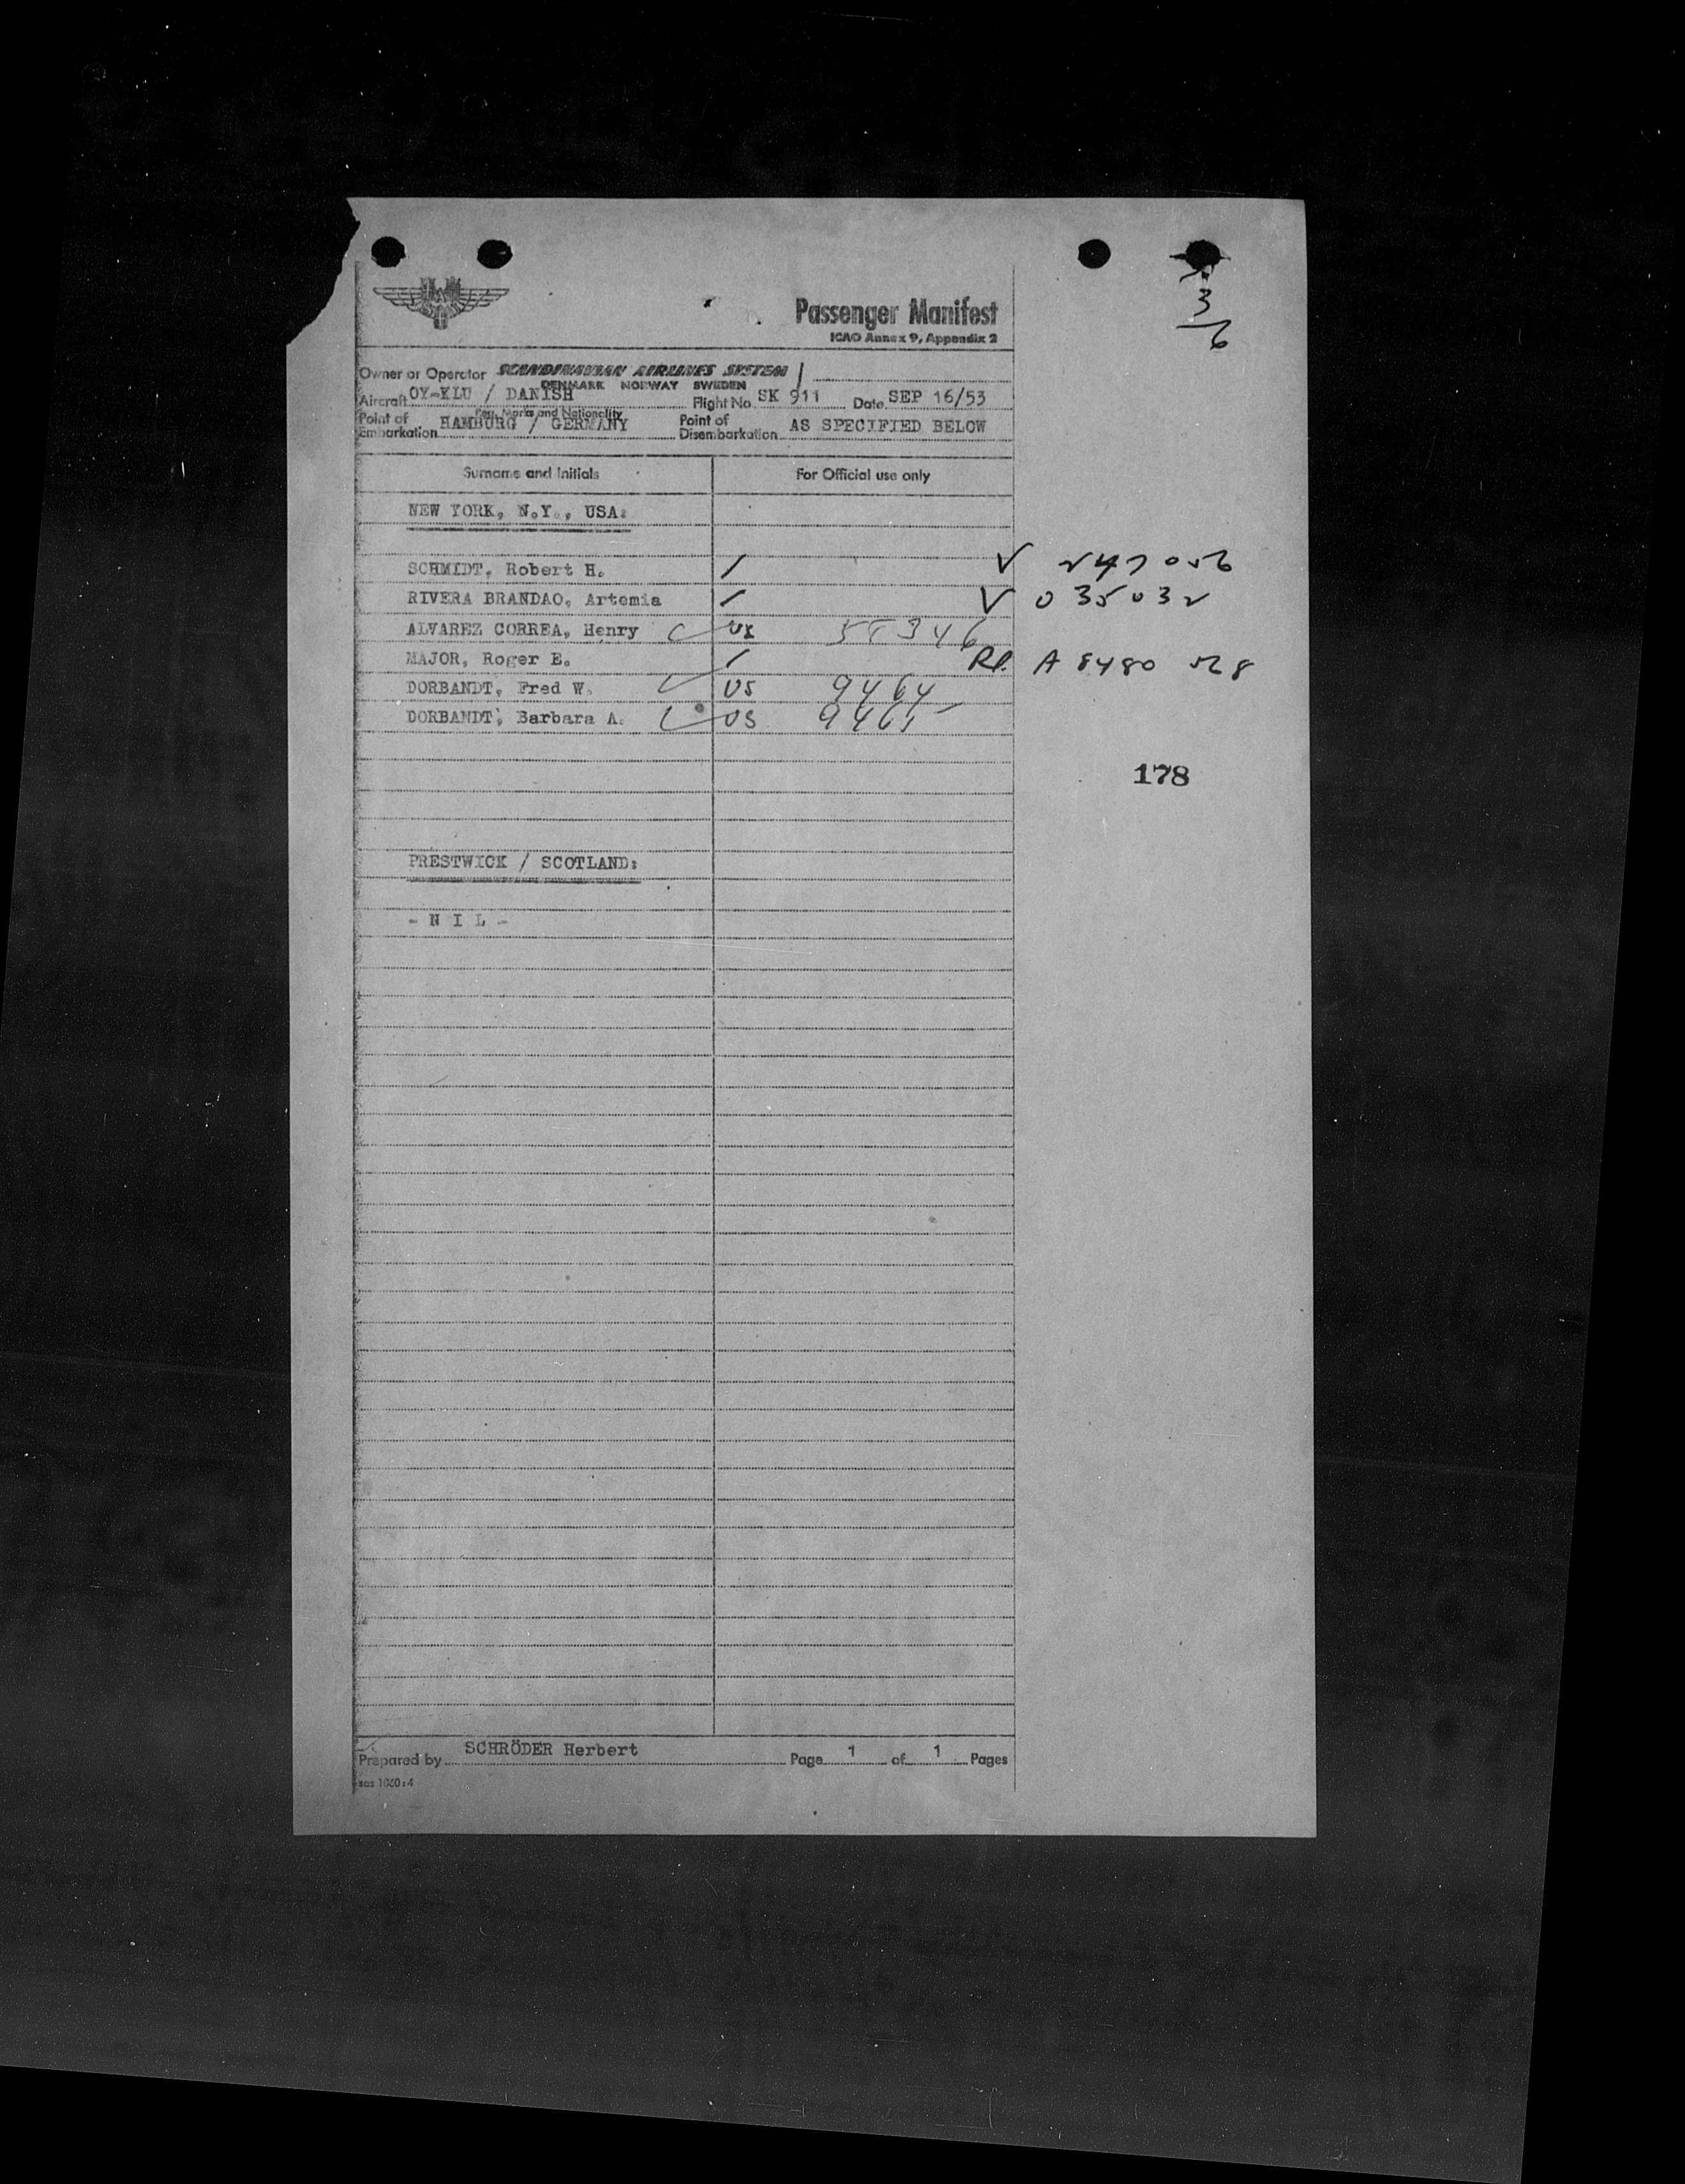 Passenger Manifest
ICAO Annex 9, Appendix 2
3
6
Owner or Operator SCANDINAVIAN AIRLINES SYSTEM
DENMARK NORWAY SWEDEN
Aircraft OY-KLU / DANISH Flight No. SK 911 Date SEP 16/53
Reg. Marks and Nationality
Point of Embarkation HAMBURG / GERMANY Point of Disembarkation AS SPECIFIED BELOW
Surname and Initials For Official use only
NEW YORK, N.Y., USA:
SCHMIDT, Robert H. / V 247056
RIVERA BRANDAO, Artemia / V 035032
ALVAREZ CORREA, Henry US
MAJOR, Roger E. / RP. A 8480 528
DORBANDT, Fred W. US 9464
DORBANDT, Barbara A. US 9465
178
PRESTWICK / SCOTLAND:
- N I L -
Prepared by SCHRÖDER Herbert Page 1 of 1 Pages
sas 1060:4